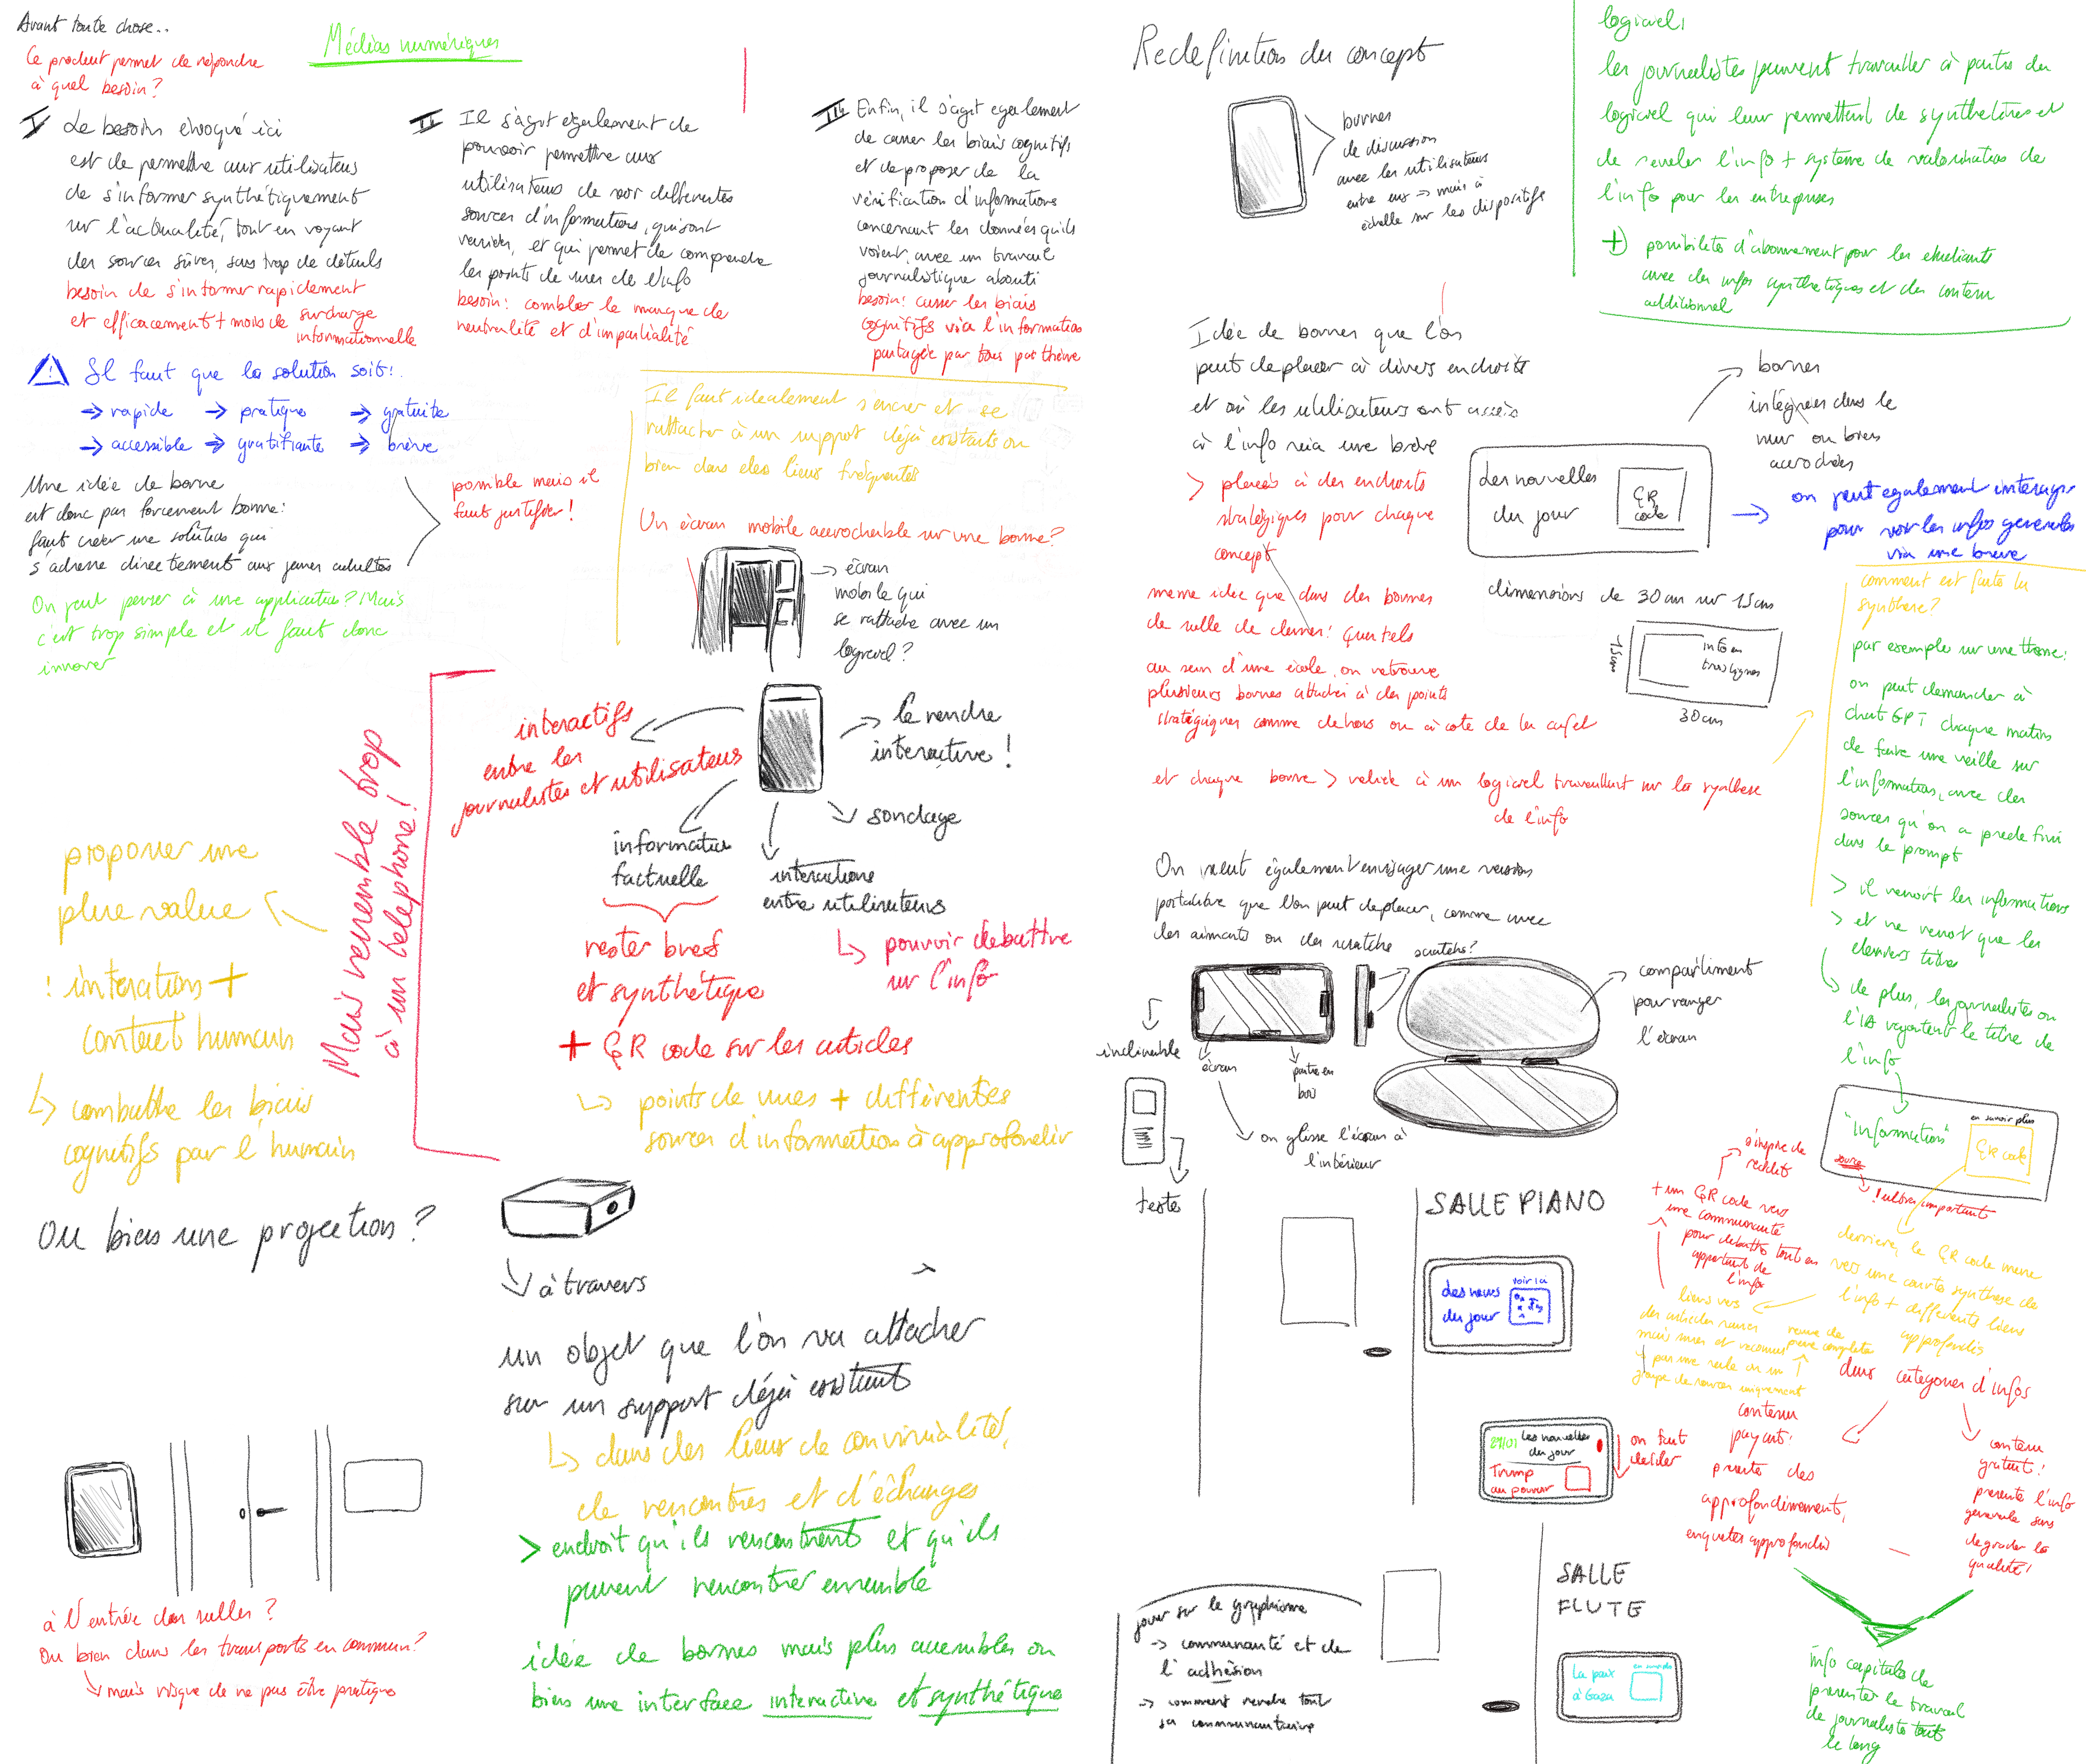 Avant toute chose..
Ce produit permet de répondre
à quel besoin?
Médias numériques
I Le besoin évoqué ici
est de permettre aux utilisateurs
de s'informer synthétiquement
sur l'actualité, tout en voyant
des sources sûres, sans trop de détails
besoin de s'informer rapidement
et efficacement + moins de surcharge
informationnelle
II Il s'agit également de
pouvoir permettre aux
utilisateurs de voir différentes
sources d'informations, qui sont
variées, et qui permet de comprendre
les points de vues de l'info
besoin: combler le manque de
neutralité et d'impartialité
III Enfin, il s'agit également
de casser les biais cognitifs
et de proposer de la
vérification d'informations
concernant les données qu'ils
voient, avec un travail
journalistique abouti
besoin: casser les biais
cognitifs via l'information
partagée par tous par thème
Il faut que la solution soit:
→ rapide → pratique → gratuite
→ accessible → gratifiante → brève
Une idée de borne
est donc pas forcément bonne:
faut créer une solution qui
s'adresse directement aux jeunes adultes
possible mais il
faut justifier!
On peut penser à une application? Mais
c'est trop simple et il faut donc
innover
Il faut idéalement s'encrer et se
rattacher à un support déjà existants ou
bien dans des lieux fréquentés
Un écran mobile accrochable sur une borne?
→ écran
mobile qui
se rattache avec un
logiciel?
interactifs
entre les
journalistes et utilisateurs
→ la rendre
interactive!
sondage
information
factuelle
interactions
entre utilisateurs
↳ pouvoir débattre
sur l'info
rester bref
et synthétique
+ QR code sur les articles
↳ points de vues + différentes
sources d'information à approfondir
Mais ressemble trop
à un téléphone!
proposer une
plue value
: interactions +
contact humain
↳ combattre les biais
cognitifs par l'humain
Ou bien une projection?
à travers
un objet que l'on va attacher
sur un support déjà existant
↳ dans des lieux de convivialité,
de rencontres et d'échanges
> endroit qu'ils rencontrent et qu'ils
peuvent rencontrer ensemble
idée de bornes mais plus accessibles ou
bien une interface interactive et synthétique
à l'entrée des salles?
Ou bien dans les transports en commun?
↳ mais risque de ne pas être pratique
Redéfinition du concept
bornes
de discussion
avec les utilisateurs
entre eux → mais à
échelle sur les dispositifs
logiciel:
les journalistes peuvent travailler à partir du
logiciel qui leur permettent de synthétiser et
de révéler l'info + système de valorisation de
l'info pour les entreprises
+ possibilités d'abonnement pour les étudiants
avec des infos synthétiques et des contenu
additionnel
Idée de bornes que l'on
peut déplacer à divers endroits
et où les utilisateurs ont accès
à l'info via une brève
> placés à des endroits
stratégiques pour chaque
concept
meme idée que dans des bornes
de salle de classe: Quartels
au sein d'une école, on retrouve
plusieurs bornes attachés à des points
stratégiques comme dehors ou à côté de la cafet
et chaque borne > reliée à un logiciel travaillant sur la synthèse
de l'info
bornes
intégrées dans le
mur ou bien
accrochées
des nouvelles
du jour
QR
code
→ on peut également interagir
pour voir les infos générales
via une brève
dimensions de 30cm sur 15cm
15cm
info en
trois lignes
30cm
comment est faite la
synthèse?
par exemple sur une thème:
on peut demander à
chat GPT chaque matins
de faire une veille sur
l'information, avec des
sources qu'on a prédéfini
dans le prompt
> il reçoit les informations
> et ne reçoit que les
derniers titres
↳ de plus, les journalistes ou
l'IA rajoutent le titre de
l'info
On peut également envisager une version
portative que l'on peut déplacer, comme avec
des aimants ou des scratchs
scratchs?
inclinable
écran
partie en
bois
compartiment
pour ranger
l'écran
↳ on glisse l'écran à
l'intérieur
texte
"information"
en savoir plus
QR code
source
! ultra important
s'inspire de
reddit
+ un QR code vers
une communauté
pour débattre tout en
apportant de
l'info
derrière, le QR code mène
vers une courte synthèse de
l'info + différents liens
approfondis
liens vers
des articles
mais surs et reconnus
revue de
presse complète
par une seule ou un
groupe de sources uniquement
SALLE PIANO
des news
du jour
voir ici
27/01 Les nouvelles
du jour
Trump
au pouvoir
on fait
défiler
deux catégories d'infos
contenu
payant:
présente des
approfondissements,
enquêtes approfondies
contenu
gratuit:
présente l'info
générale sans
dégrader la
qualité!
info capitale de
présenter le travail
de journaliste tout
le long
SALLE
FLUTE
La paix
à Gaza
en savoir plus
jouer sur le graphisme
→ communauté et de
l'adhésion
→ comment rendre tout
ça communautaire